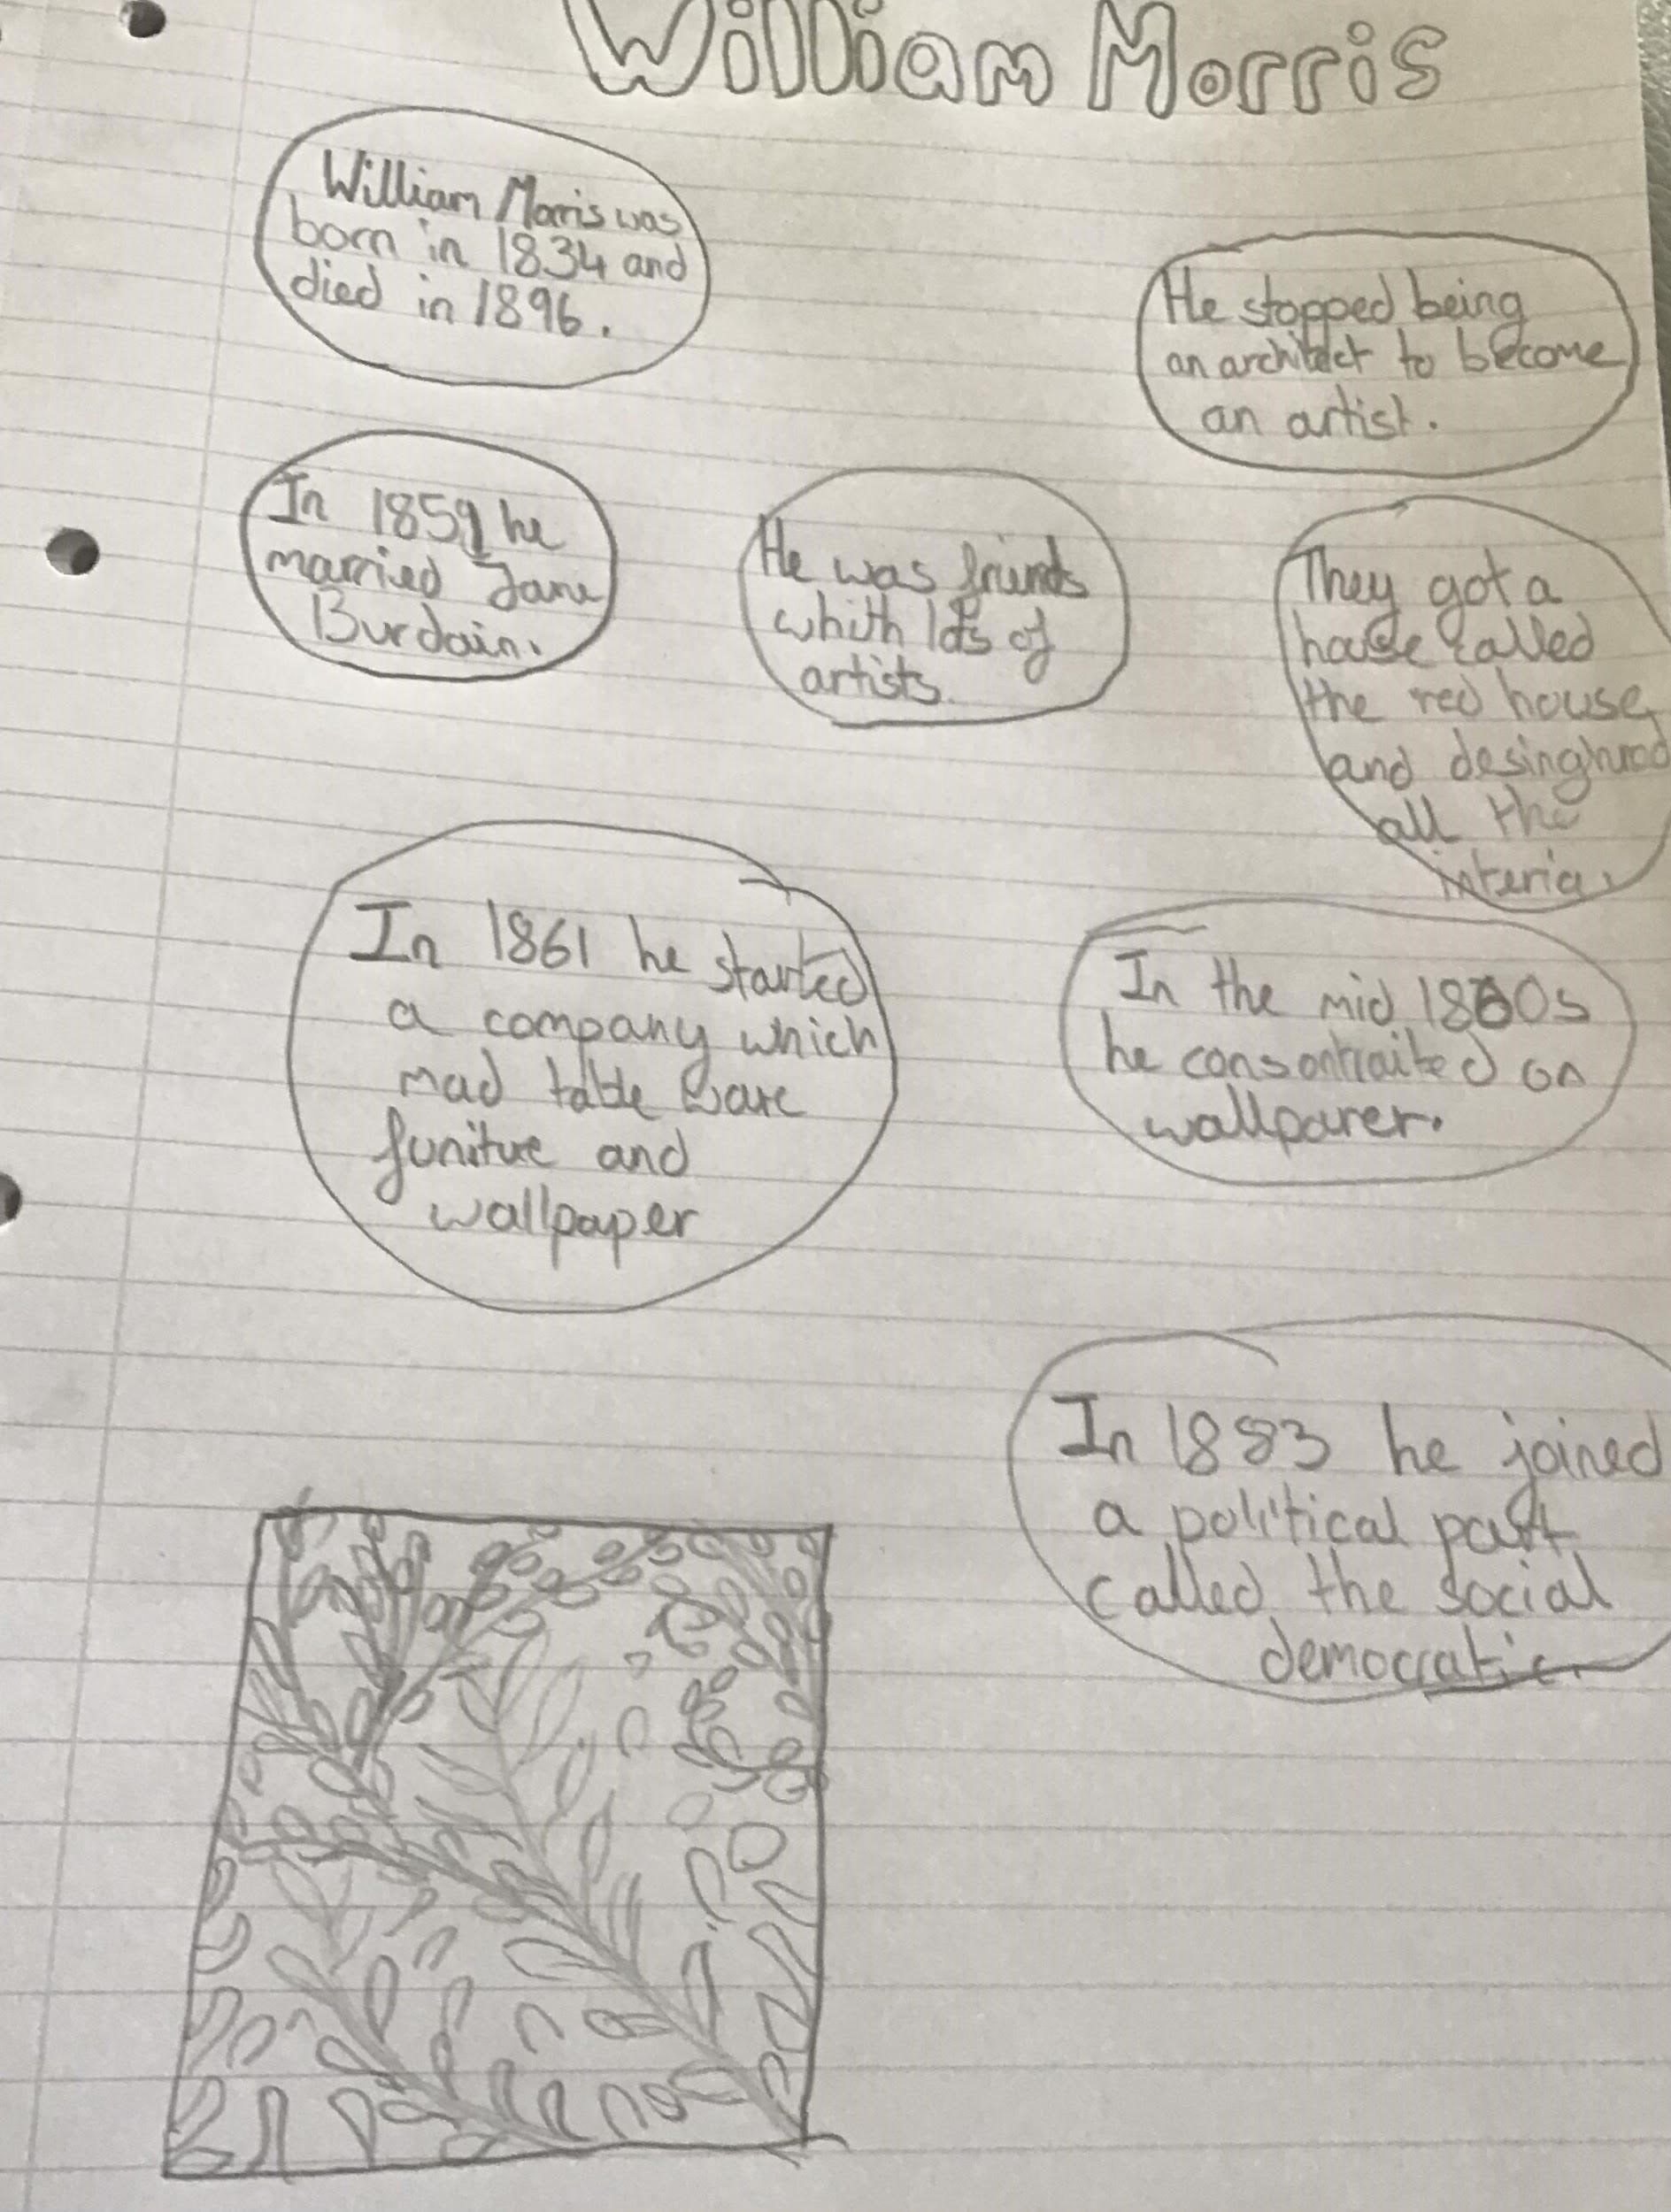 William Morris
William Morris was
born in 1834 and
died in 1896.
He stopped being
an architect to become
an artist.
In 1859 he
married Jane
Burdain.
He was friends
whith lots of
artists.
They got a
house called
the red house,
and desinghned
all the
interia.
In 1861 he started
a company which
mad table ware
funiture and
wallpaper
In the mid 1860s
he consontraited on
wallparer.
In 1883 he joined
a political part
called the social
democratic.